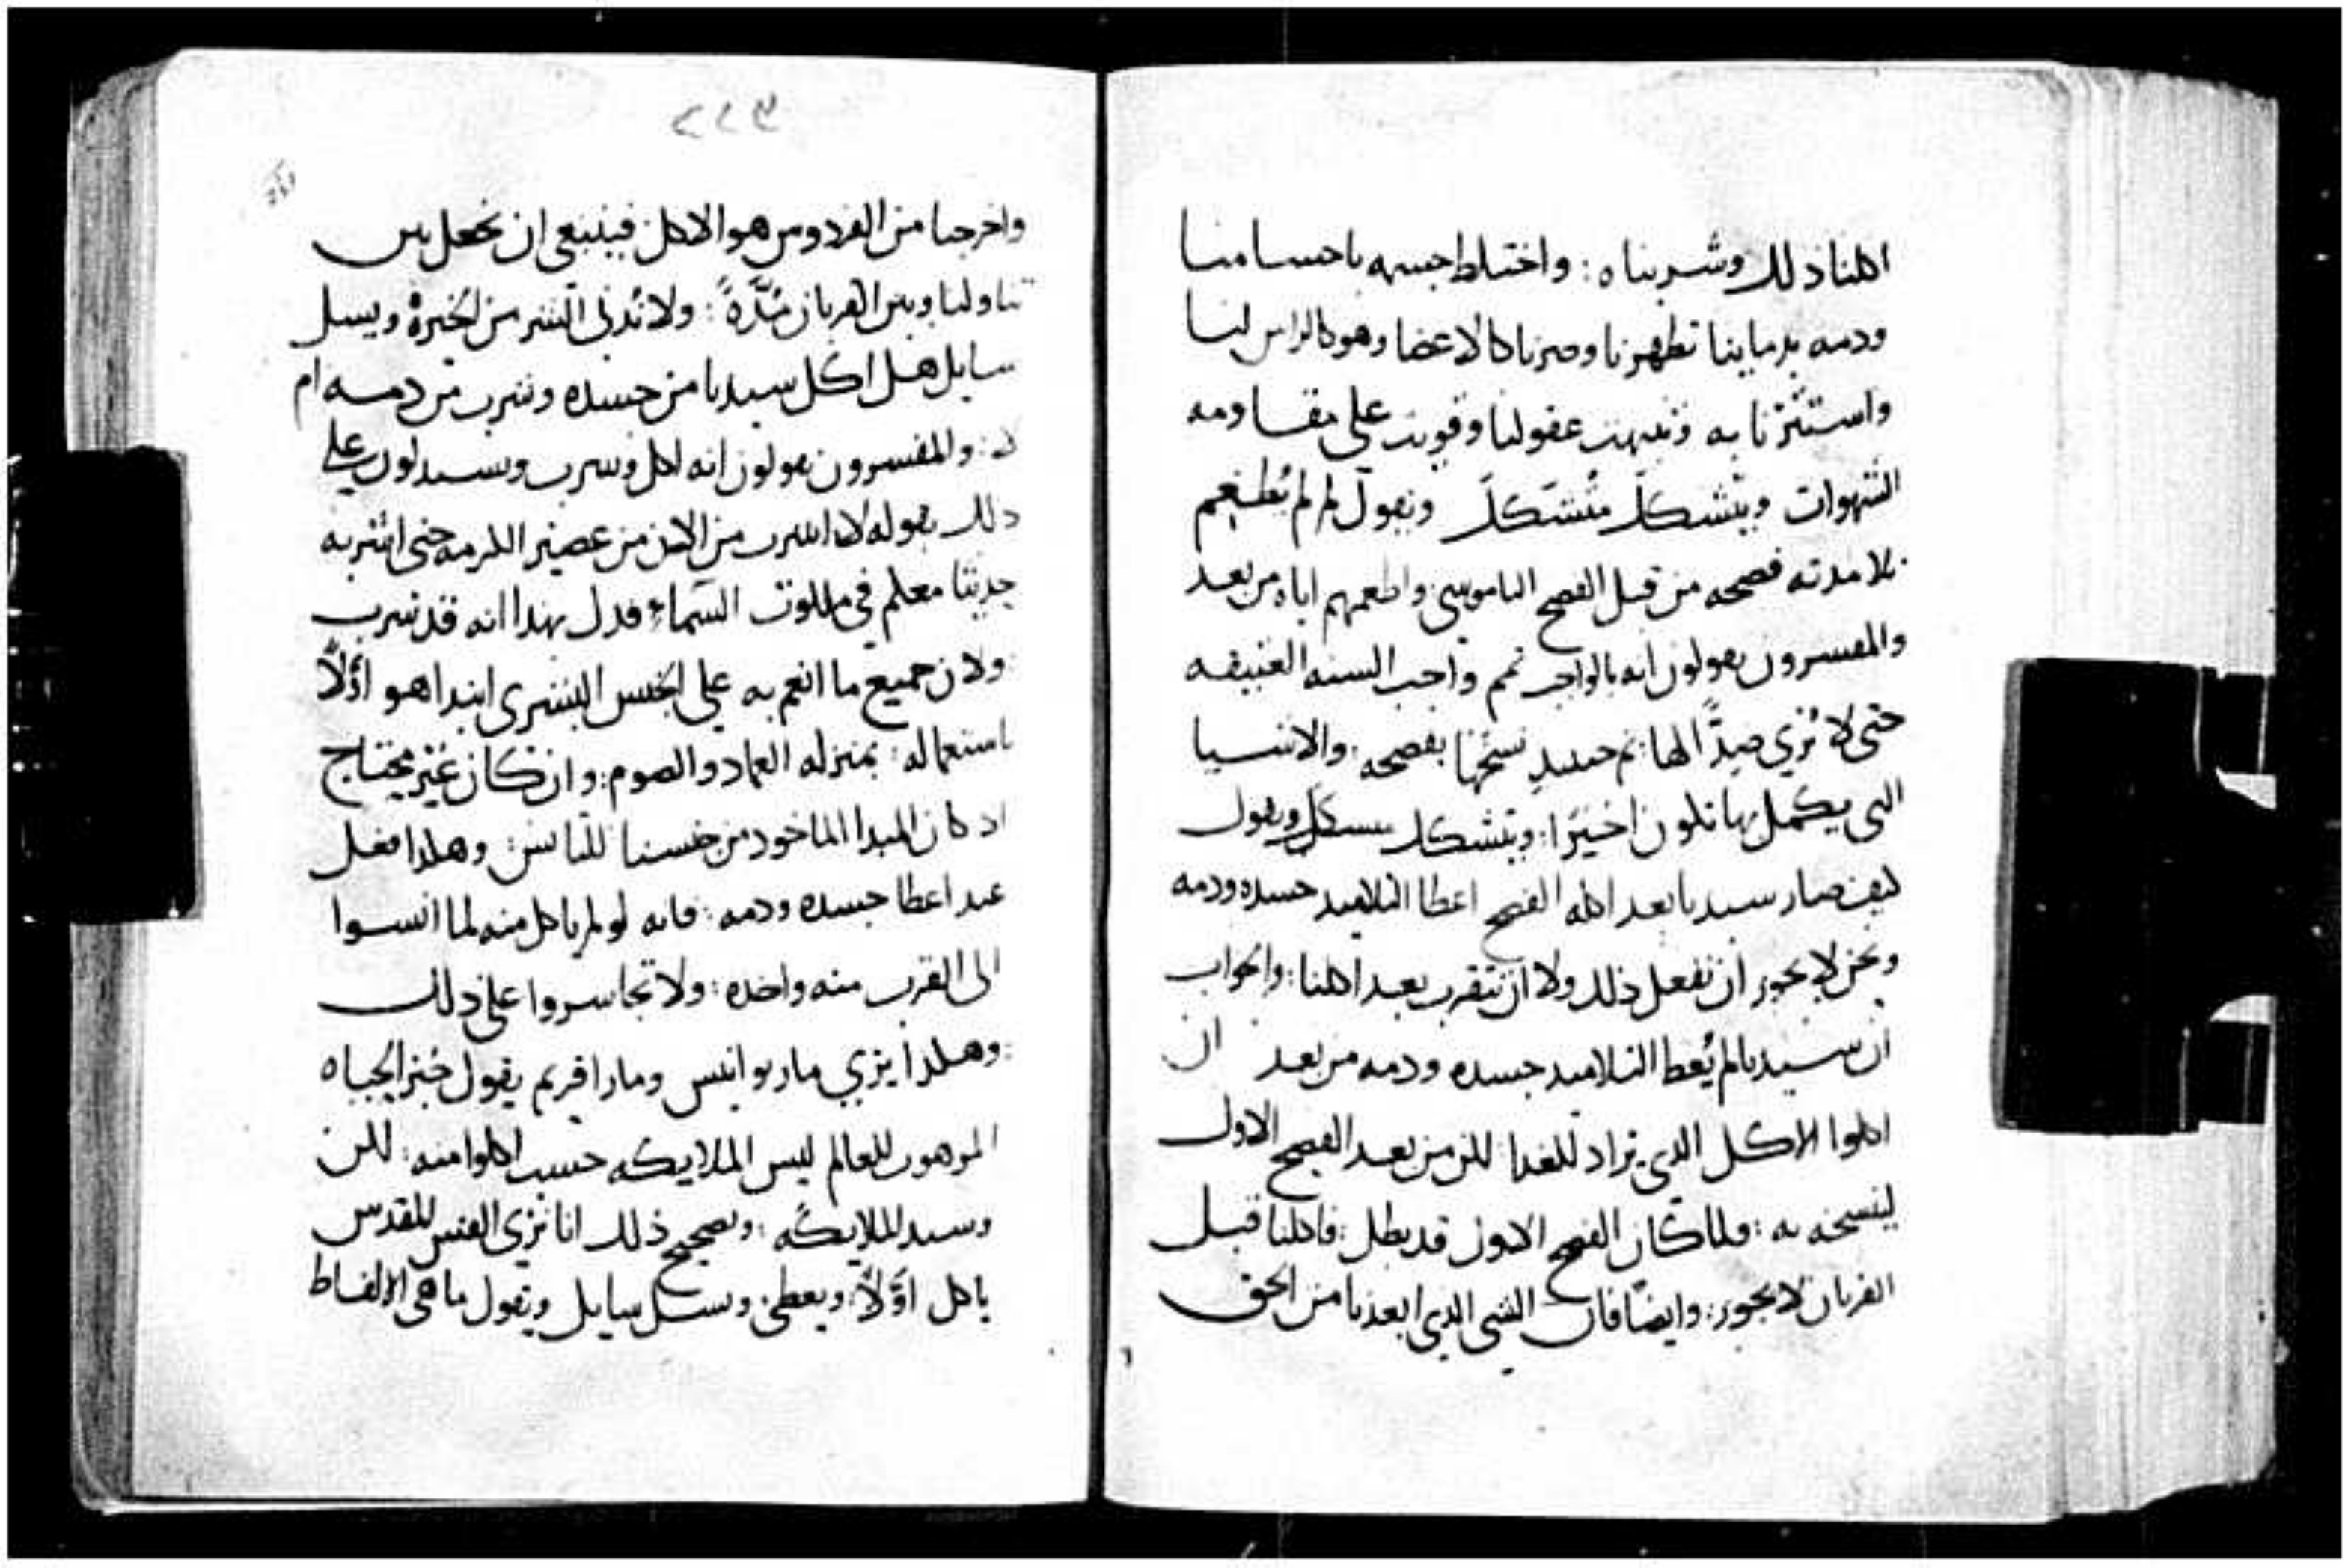 اكلنا ذلك وشربناه : واختلط جسمه باجسامنا
ودمه بدماينا تطهرنا وصرنا كالاعضا وهو كالراس لنا
واستنرنا به وتنبهت عقولنا وقويت على مقاومه
الشهوات ويتشكك متشكك ويقول لِمَ لم يُطعم
تلامدته فصحه من قبل الفصح الناموسي واطعمهم اياه من بعد
والمفسرون يقولون انه بالواجب تمم واجب السنه العتيقه
حتى لا يُرى ضِدًّا لها : ثم حينيدٍ نسخها بفصحه : والاشيا
التي يكمل بها تكون اخيرًا : ويتشكك متشكك ويقول
كيف صار سيدنا بعد اكله الفصح اعطا التلاميد جسده ودمه
ونحن لا يجوز ان نفعل ذلك ولا ان نتقرب بعد اكلنا : والجواب
ان سيدنا لم يُعط التلاميد جسده ودمه من بعد ان
اكلوا الاكل الذي يراد للغدا لكن من بعد الفصح الاول
لينسخه به : ولما كان الفصح الاول قد بطل : فاكلنا قبل
القربان لا يجوز : وايضًا فان الشي الذي ابعدنا من الحق
٢٢٣
واخرجنا من الفردوس هو الاكل فينبغي ان نجعل بين
تناولنا وبين القربان مُدَّةً : ولا نُدني الشر من الخيرة ويسل
سايل هل اكل سيدنا من جسده وشرب من دمه ام
لا : والمفسرون يقولون انه اكل وشرب ويستدلون على
ذلك بقوله لا اشرب من الان من عصير الكرمه حتى اشربه
جديدًا معكم في ملكوت السماء فدل بهذا انه قد شرب
ولان جميع ما انعم به على الجنس البشري ابتدا هو اوّلًا
باستعماله : بمنزله العماد والصوم : وان كان غير محتاج
اد كان المبدا الماخود من جنسنا للناس : وهكدا فعل
عند اعطا جسده ودمه : فانه لو لم ياكل منه لما انسوا
الى القرب منه واخده : ولا تجاسروا على ذلك
وهكدا يرى مار يوانيس ومار افريم يقول خبز الحياه
الموهوب للعالم ليس الملايكه حسب اكلوا منه : لكن
وسيد الملايكه : وتصحيح ذلك انا نرى القس المقدس
ياكل اوّلًا : ويعطي : ويسل سايل ويقول ما هي الالفاظ